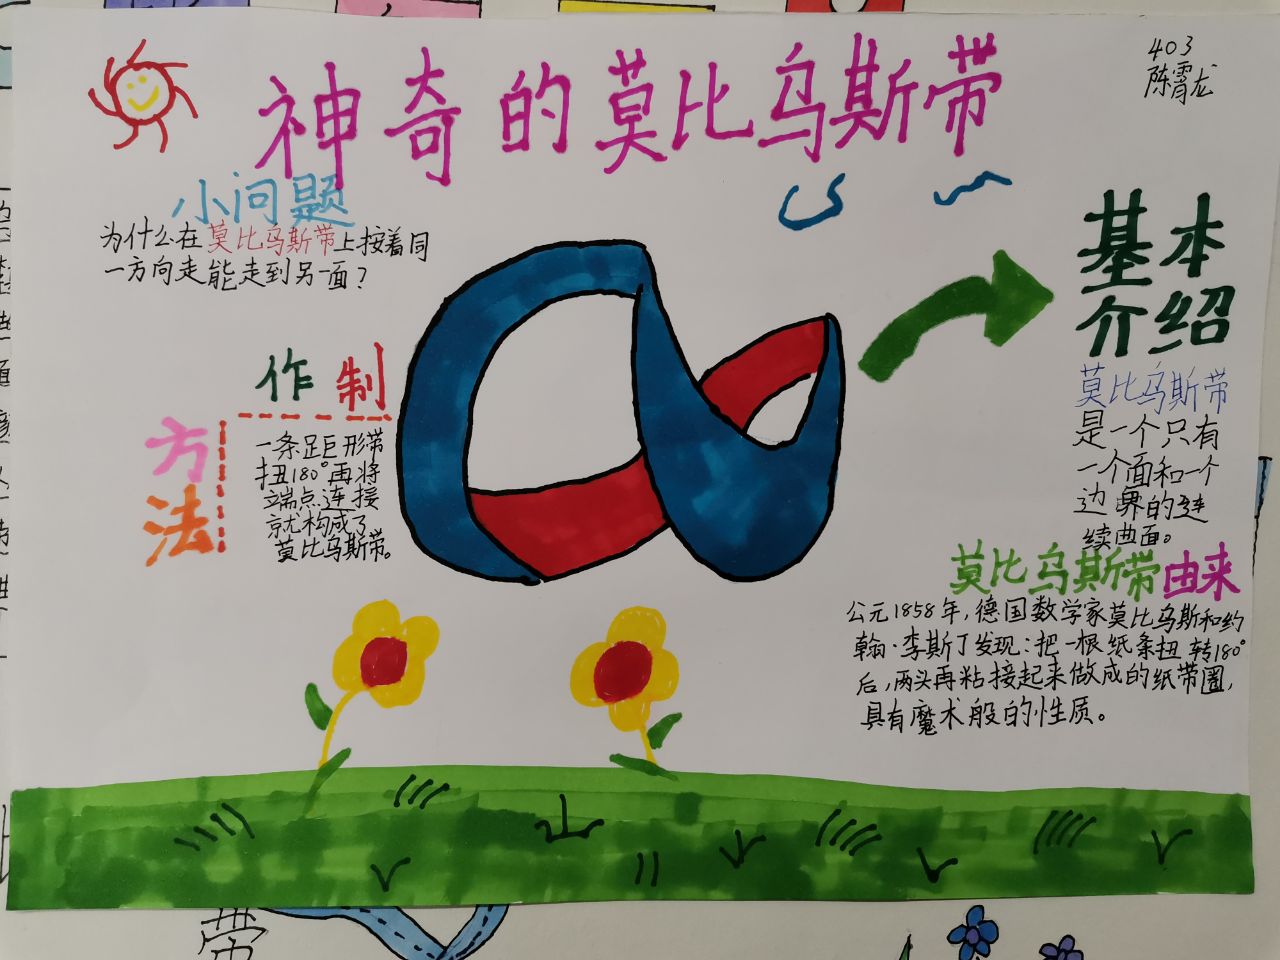 神奇的莫比乌斯带
403
陈霄龙
小问题
为什么在莫比乌斯带上按着同
一方向走能走到另一面？
制作
方法
一条距形带
扭180°再将
端点连接
就构成了
莫比乌斯带。
基本
介绍
莫比乌斯带
是一个只有
一个面和一个
边界的连
续曲面。
莫比乌斯带由来
公元1858年，德国数学家莫比乌斯和约
翰·李斯丁发现：把一根纸条扭转180°
后，两头再粘接起来做成的纸带圈，
具有魔术般的性质。
带